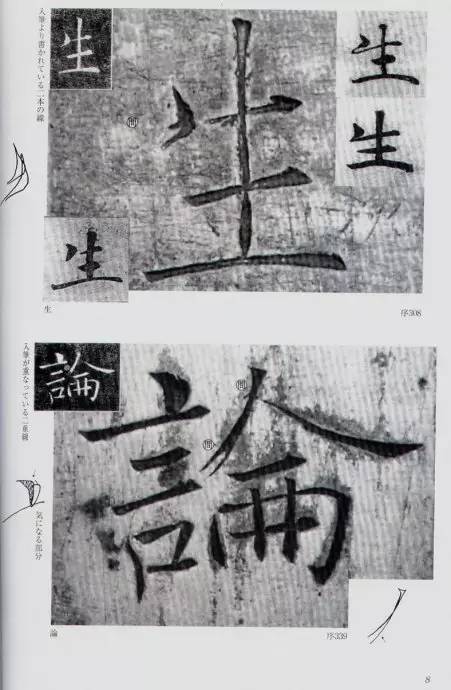 入筆より書かれている二本の線
生
生
生
生
間
生
生
序308
入筆が重なっている二重線
論
論
間
間
気になる部分
論
序339
8